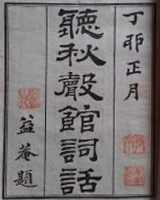 丁卯正月
聽秋聲館詞話
益菴題